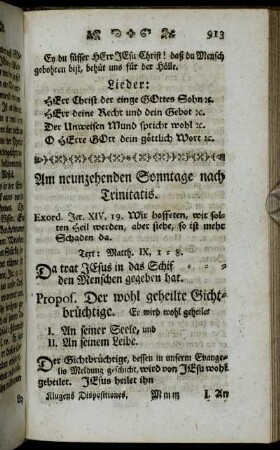 913
Ey du süsser HErr JEsu Christ! daß du Mensch
gebohren bist, behüt uns für der Hölle.
Lieder:
HErr Christ der einge GOttes Sohn ꝛc.
HErr deine Recht und dein Gebot ꝛc.
Der Unweisen Mund spricht wohl ꝛc.
O HErre GOtt dein göttlich Wort ꝛc.
Am neunzehenden Sonntage nach
Trinitatis.
Exord. Jer. XIV. 19. Wir hoffeten, wir sol-
ten Heil werden, aber siehe, so ist mehr
Schaden da.
Text: Matth. IX, 1-8.
Da trat JEsus in das Schif
den Menschen gegeben hat.
Propos. Der wohl geheilte Gicht-
brüchtige. Er wird wohl geheilet
I. An seiner Seele, und
II. An seinem Leibe.
Der Gichtbrüchtige, dessen in unserm Evange-
lio Meldung geschicht, wird von JEsu wohl
geheilet. JEsus heilet ihn
Klugens Dispositiones, Mmm I. An